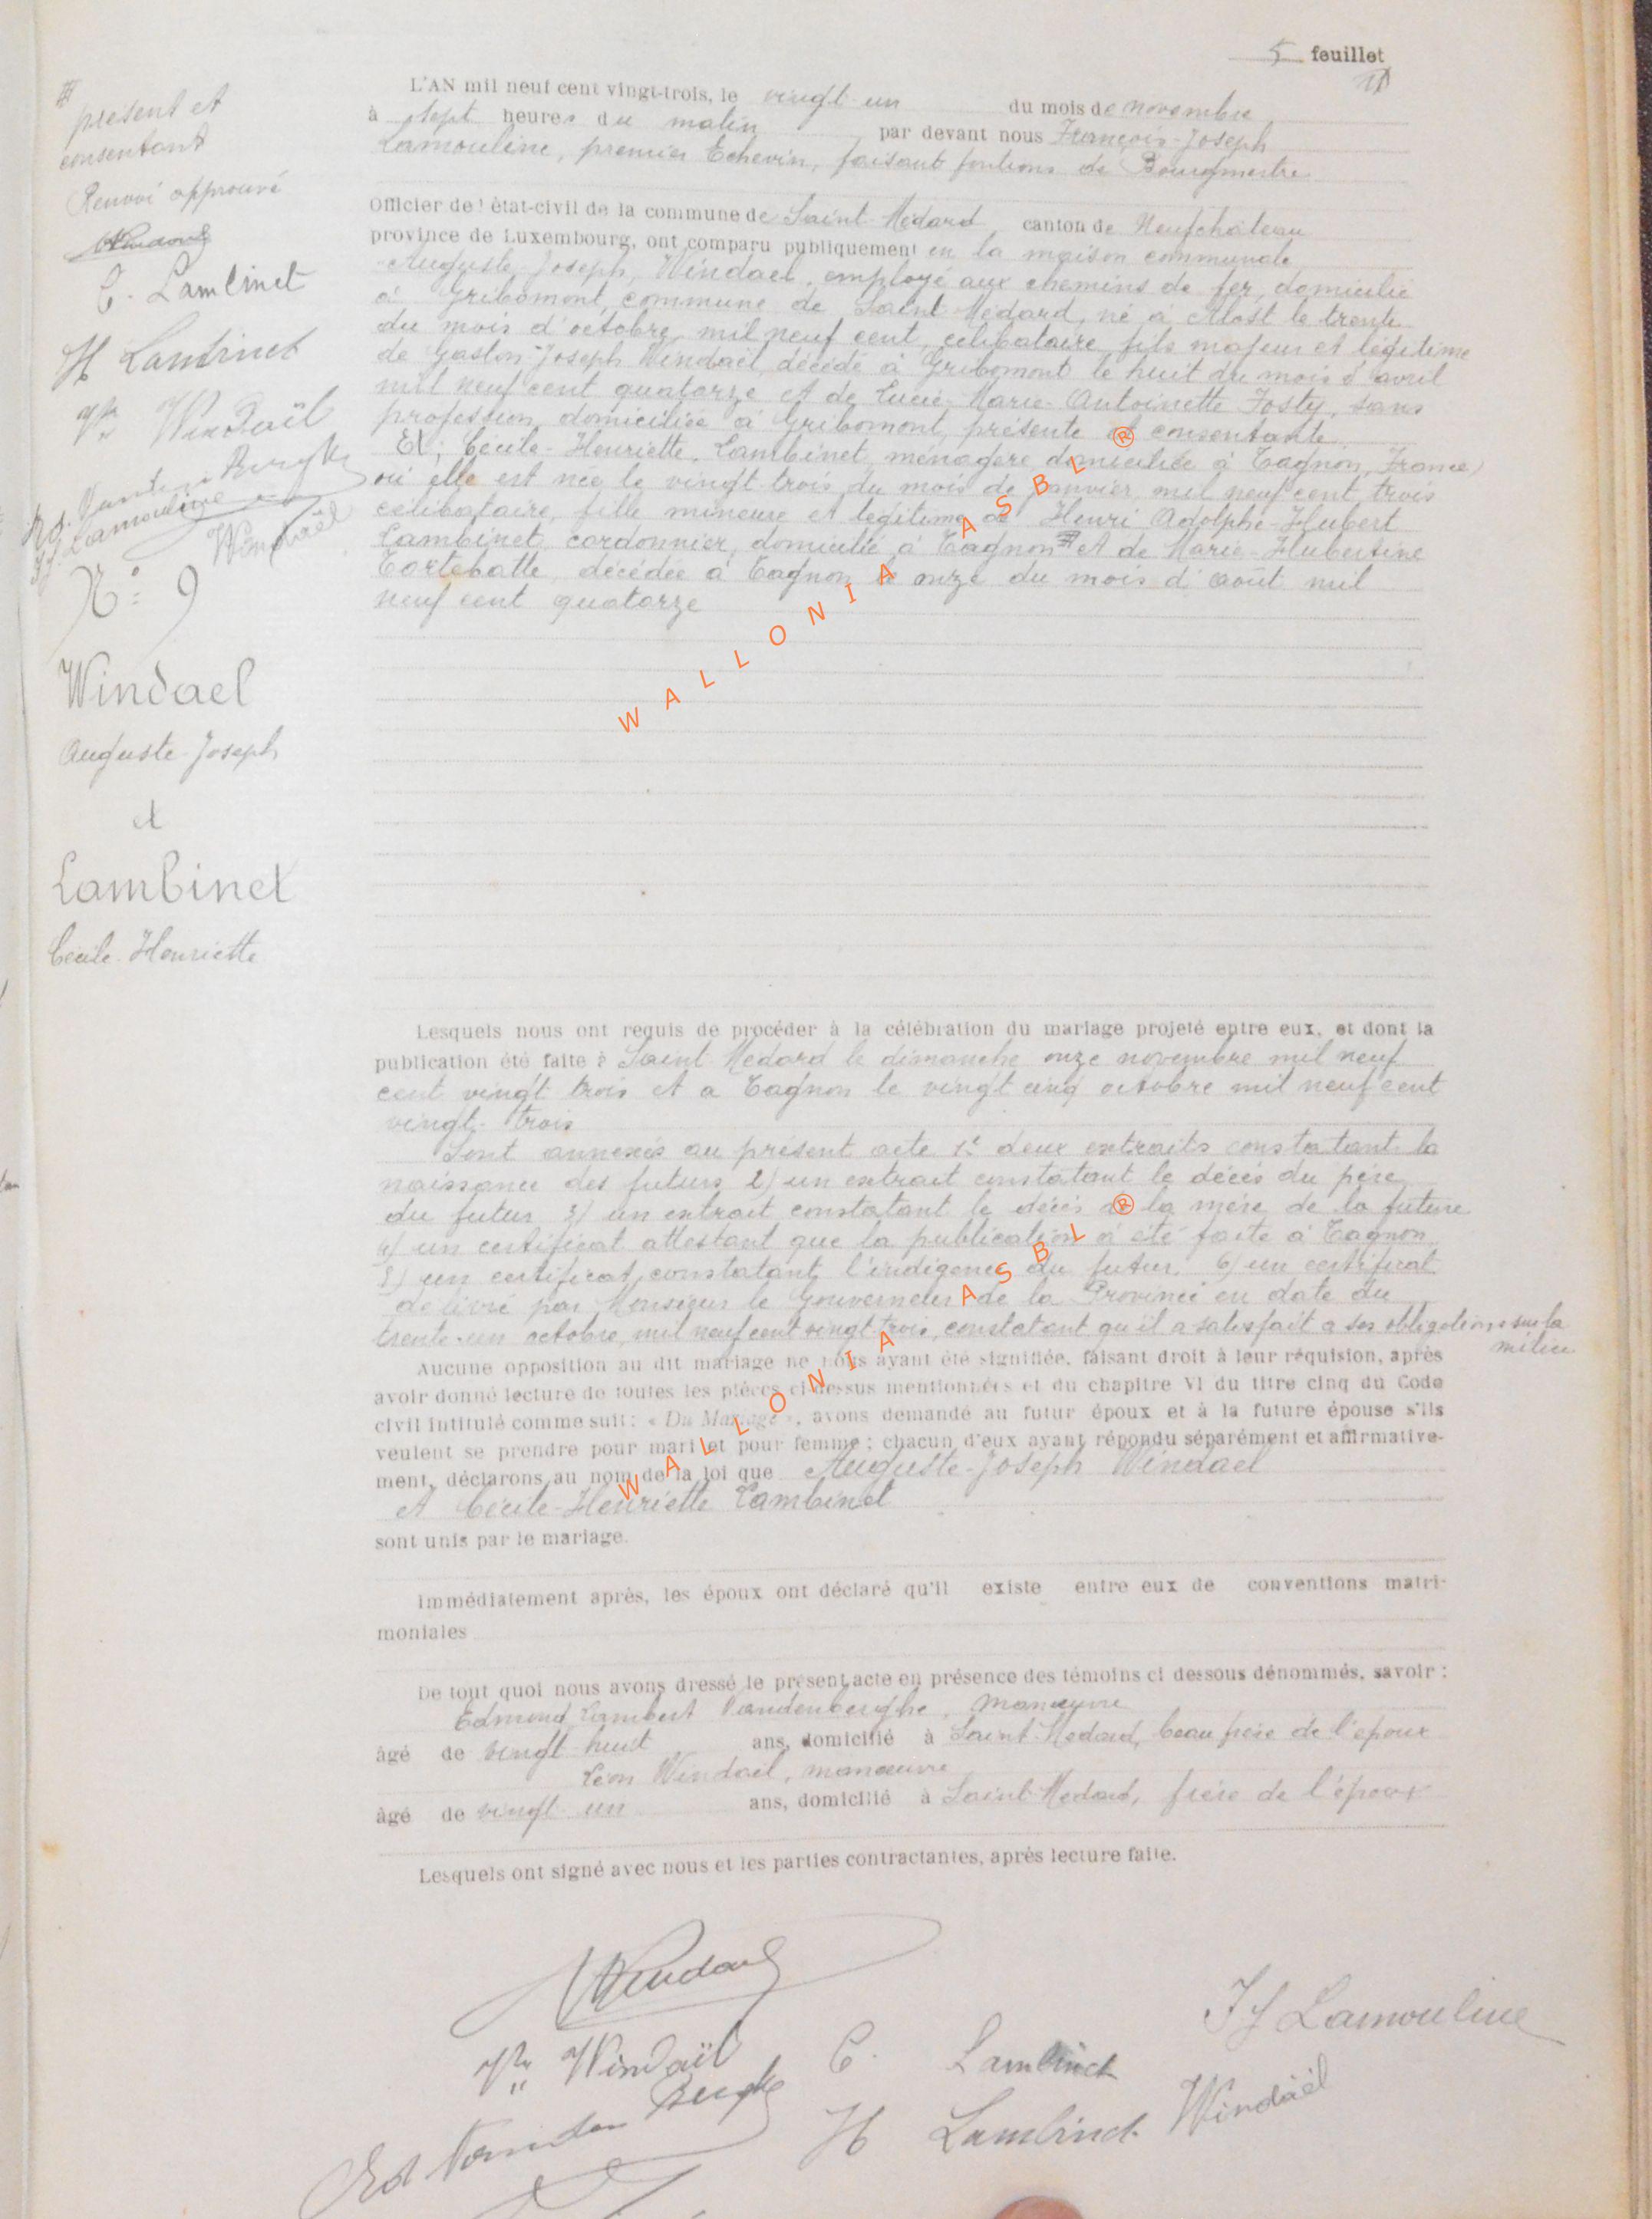 5 feuillet
#
présent et
consentant
Renvoi approuvé
C. Lambinet
H Lambinet
Vve Windaël
Windaël
N° 9
Windael
Auguste-Joseph
et
Lambinet
Cécile-Henriette
L'AN mil neuf cent vingt-trois, le vingt un du mois de novembre
à sept heures du matin par devant nous François-Joseph
Lamouline, premier Echevin, faisant fontions de Bourgmestre
Officier de l'état-civil de la commune de Saint-Médard canton de Neufchâteau
province de Luxembourg, ont comparu publiquement en la maison communale
Auguste-Joseph, Windael, employé aux chemins de fer, domicilié
à Gribomont, commune de Saint-Médard, né à Alost le trente
du mois d'octobre mil neuf cent, célibataire, fils majeur et légitime
de Gaston-Joseph Windaël, décédé à Gribomont le huit du mois d'avril
mil neuf cent quatorze et de Lucie-Marie-Antoinette Josty, sans
profession, domiciliée à Gribomont, présente et consentante
Et, Cécile-Henriette, Lambinet, ménagère domiciliée à Tagnon, France,
où elle est née le vingt-trois du mois de janvier mil neuf cent trois
célibataire, fille mineure et légitime de Henri Adolphe-Hubert
Lambinet, cordonnier, domicilié à Tagnon # et de Marie-Hubertine
décédée à Tagnon le onze du mois d'août mil
neuf cent quatorze
Lesquels nous ont requis de procéder à la célébration du mariage projeté entre eux, et dont la
publication été faite à Saint-Médard le dimanche onze novembre mil neuf
cent vingt trois et a Tagnon le vingt cinq octobre mil neuf cent
vingt-trois
Sont annexés au présent acte 1° deux extraits constatant la
naissance des futurs 2) un extrait constatant le décès du père
du futur 3) un extrait constatant le décès de la mère de la future
4) un certificat attestant que la publication a été faite à Tagnon
5) un certificat constatant l'indigence du futur. 6) un certificat
délivré par Monsieur le Gouverneur de la Province en date du
trente-un octobre, mil neuf cent vingt-trois, constatant qu'il a satisfait a ses obligations sur la
milice
Aucune opposition au dit mariage ne nous ayant été signifiée, faisant droit à leur réquision, après
avoir donné lecture de toutes les pièces ci-dessus mentionnées et du chapitre VI du titre cinq du Code
civil intitulé comme suit : « Du Mariage », avons demandé au futur époux et à la future épouse s'ils
veulent se prendre pour mari et pour femme ; chacun d'eux ayant répondu séparément et affirmative-
ment, déclarons au nom de la loi que Auguste-Joseph Windael
et Cécile-Henriette Lambinet
sont unis par le mariage.
Immédiatement après, les époux ont déclaré qu'il existe entre eux de conventions matri-
moniales
De tout quoi nous avons dressé le présent acte en présence des témoins ci dessous dénommés, savoir :
Edmond Lambert Vandenberghe, manœuvre
âgé de vingt-huit ans, domicilié à Saint-Médard, beau frère de l'époux
Léon Windael, manœuvre
âgé de vingt un ans, domicilié à Saint-Médard, frère de l'époux
Lesquels ont signé avec nous et les parties contractantes, après lecture faite.
Windael
FJ Lamouline
Vve Windaël
C. Lambinet
Ed Vanden Berghe
H Lambinet
Windaël
WALLONIA ASBL ®
WALLONIA ASBL ®